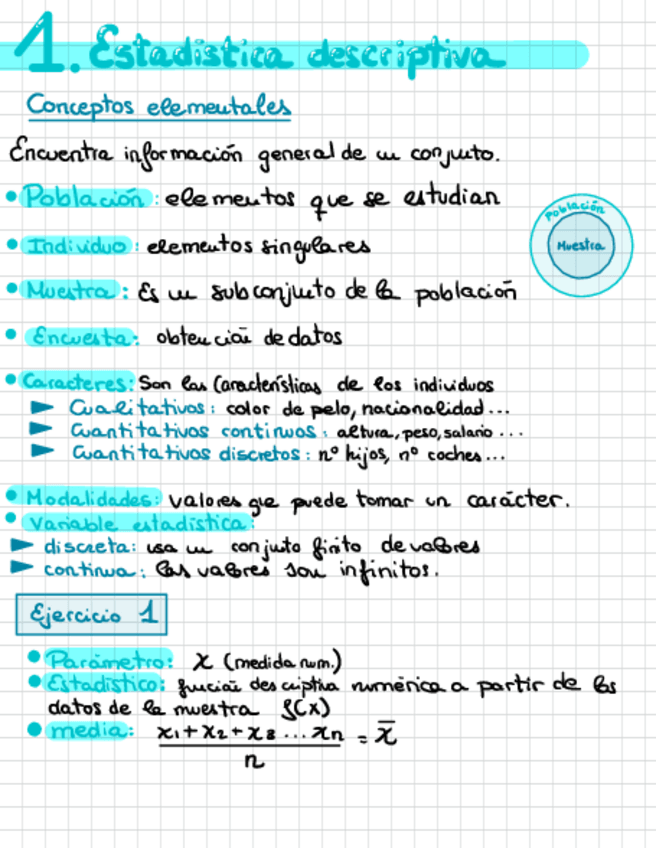 1. Estadistica descriptiva
Conceptos elementales
Encuentra información general de un conjunto.
• Población: elementos que se estudian
Población
Muestra
• Individuo: elementos singulares
• Muestra: Es un subconjunto de la población
• Encuesta: obtención de datos
• Caracteres: Son las Características de los individuos
► Cualitativos: color de pelo, nacionalidad...
► Cuantitativos continuos: altura, peso, salario...
► Cuantitativos discretos: nº hijos, nº coches...
• Modalidades: valores que puede tomar un carácter.
• Variable estadística:
► discreta: usa un conjuto finito de valores
► continua: los valores son infinitos.
Ejercicio 1
• Parámetro: X (medida num.)
• Estadístico: función descriptiva numérica a partir de los
datos de la muestra f(x)
• media: x₁ + x₂ + x₃ ... xn / n = x̄